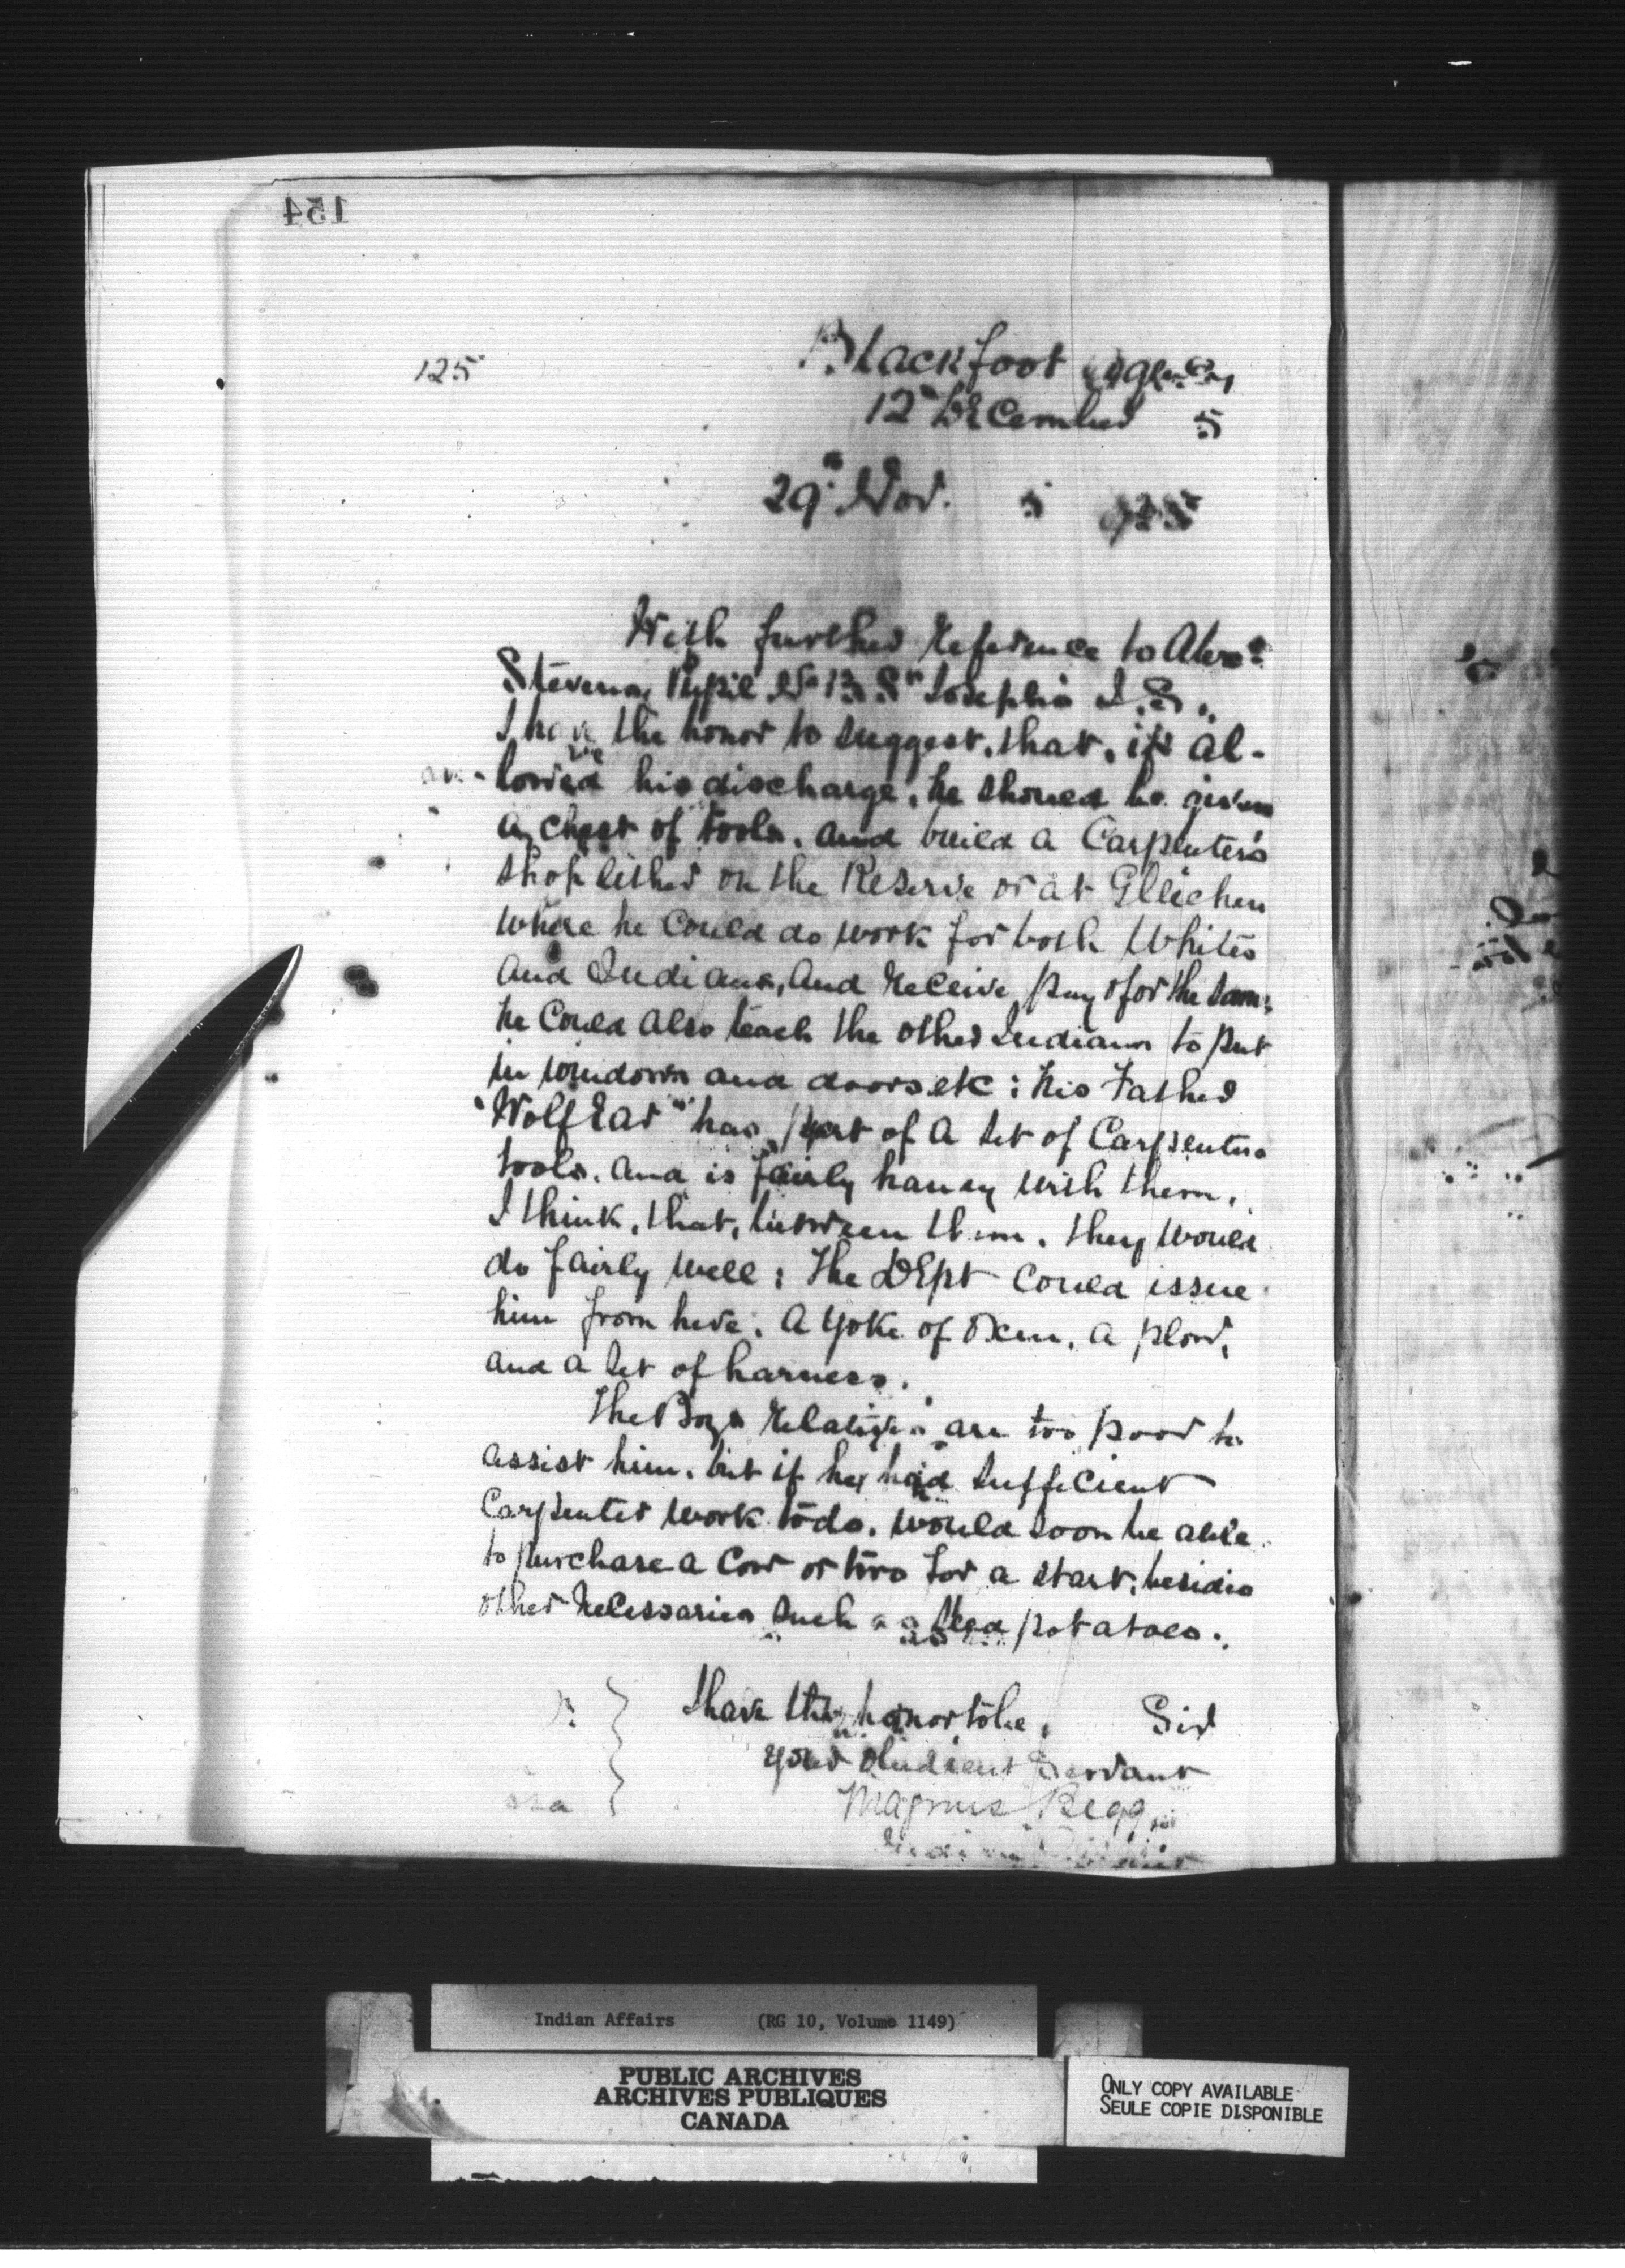 154
125
Blackfoot Agency
12th December 5
29th Nov. 5
With further reference to Alexr
Stevens, Pupil No 13 St Josephs I.S.,
I have the honor to suggest, that, if al-
lowed his discharge, he should be given
a chest of tools, and build a Carpenter's
shop either on the Reserve or at Gleichen
where he could do work for both Whites
and Indians, and receive pay for the same
he could also teach the other Indians to put
in windows and doors etc: his Father
"Wolf Ear" has part of a set of Carpenters
tools, and is fairly handy with them,
I think, that, between them, they would
do fairly well; the Dept could issue
him from here, a yoke of oxen, a plow,
and a set of harness.
The Boys relatives are too poor to
assist him, but if he had sufficient
Carpenter work to do, would soon be able
to purchase a cow or two for a start, besides
other necessaries such as seed potatoes.
I have the honor to be, Sir
your obedient Servant
Magnus Begg
Indian Affairs (RG 10, Volume 1149)
PUBLIC ARCHIVES
ARCHIVES PUBLIQUES
CANADA
ONLY COPY AVAILABLE
SEULE COPIE DISPONIBLE